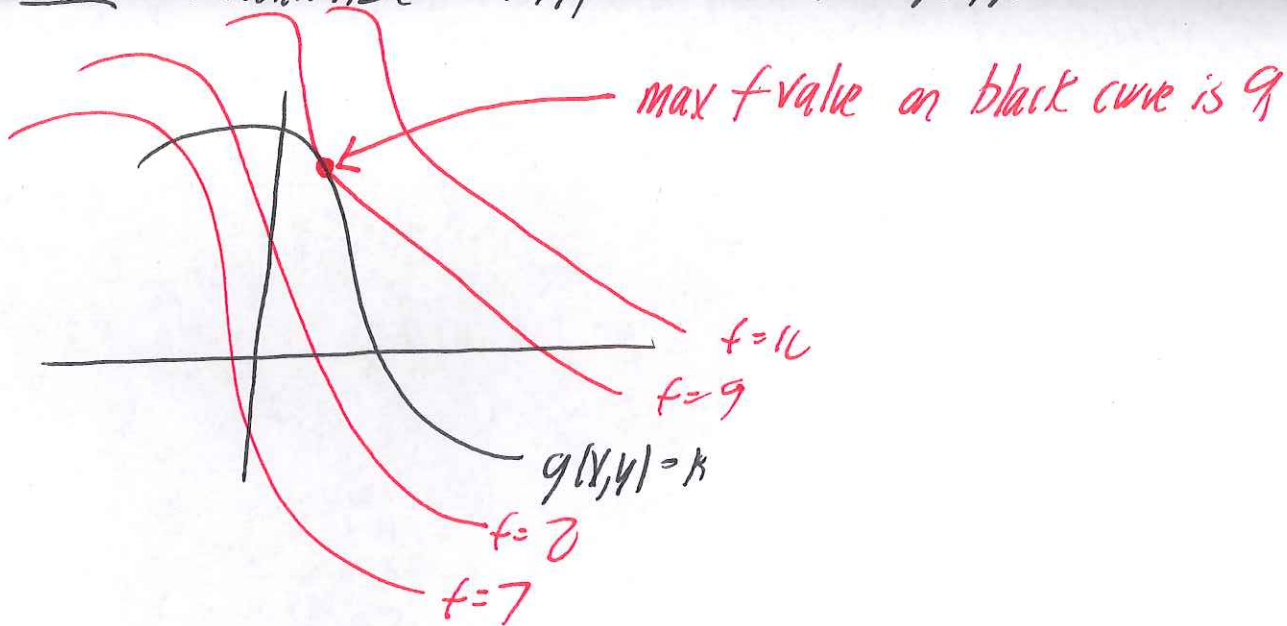 max f value on black curve is 9
f=10
f=9
g(x,y)=k
f=8
f=7